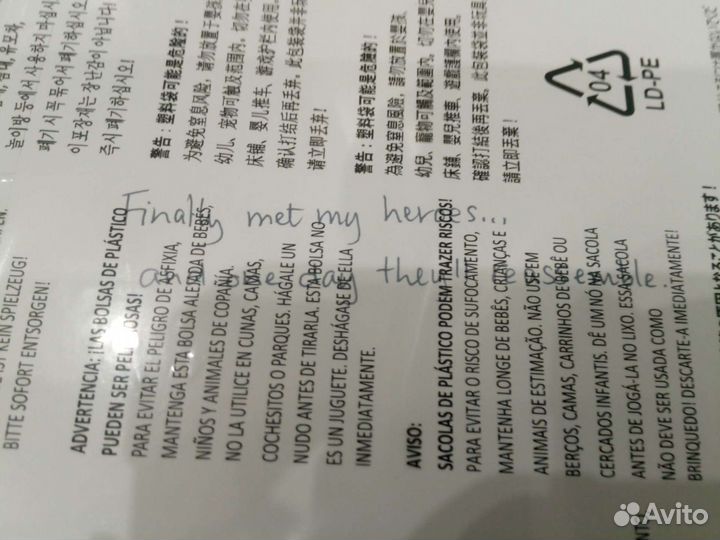 침대, 유모차,
놀이방 등에서 사용하지 마십시오
폐기 시 꼭 묶어서 폐기하십시오
이 포장재는 장난감이 아닙니다!
즉시 폐기하십시오!
警告：塑料袋可能是危险的！
为避免窒息风险，请勿放置于婴孩、
幼儿、宠物可触及范围内，切勿在婴
床铺、婴儿推车、游戏护栏内使用。
确认打结后再丢弃。此包装袋并非玩
请立即丢弃！
警告：塑料袋可能是危險的！
為避免窒息風險，請勿放置於嬰孩、
幼兒、寵物可觸及範圍內，切勿在嬰兒
床鋪、嬰兒推車、遊戲護欄內使用。
確認打結後再丟棄。此包裝袋並非玩具
請立即丟棄！
04
LD-PE
Finally met my heroes...
and one day they'll be
IST KEIN SPIELZEUG!
BITTE SOFORT ENTSORGEN!
ADVERTENCIA: ¡LAS BOLSAS DE PLÁSTICO
PUEDEN SER PELIGROSAS!
PARA EVITAR EL PELIGRO DE ASFIXIA,
MANTENGA ESTA BOLSA ALEJADA DE BEBÉS,
NIÑOS Y ANIMALES DE COPAÑÍA.
NO LA UTILICE EN CUNAS, CAMAS,
COCHESITOS O PARQUES. HÁGALE UN
NUDO ANTES DE TIRARLA. ESTA BOLSA NO
ES UN JUGUETE. DESHÁGASE DE ELLA
INMEDIATAMENTE.
AVISO:
SACOLAS DE PLÁSTICO PODEM TRAZER RISCOS!
PARA EVITAR O RISCO DE SUFOCAMENTO,
MANTENHA LONGE DE BEBÊS, CRIANÇAS E
ANIMAIS DE ESTIMAÇÃO. NÃO USE EM
BERÇOS, CAMAS, CARRINHOS DE BEBÊ OU
CERCADOS INFANTIS. DÊ UM NÓ NA SACOLA
ANTES DE JOGÁ-LA NO LIXO. ESSA SACOLA
NÃO DEVE SER USADA COMO
BRINQUEDO! DESCARTE-A IMEDIATAMENTE!
Avito